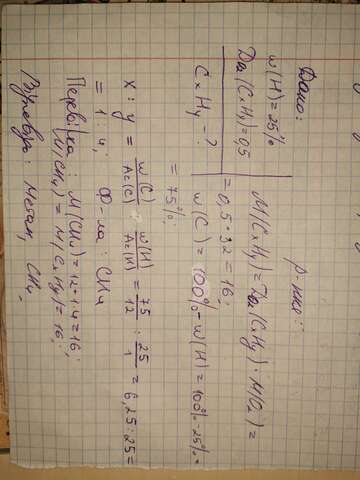 Дано:
w(H) = 25%
Dₒ₂(CxHy) = 0,5
CxHy - ?
р-ння:
M(CxHy) = Dₒ₂(CxHy) · M(O₂) =
= 0,5 · 32 = 16;
w(C) = 100% - w(H) = 100% - 25% =
= 75%;
x : y = w(C)/Ar(C) : w(H)/Ar(H) = 75/12 : 25/1 = 6,25 : 25 =
= 1 : 4; Ф-ла: CH4
Перевірка: M(CH4) = 12 + 1·4 = 16;
M(CH4) = M(CxHy) = 16;
Метан, CH4.